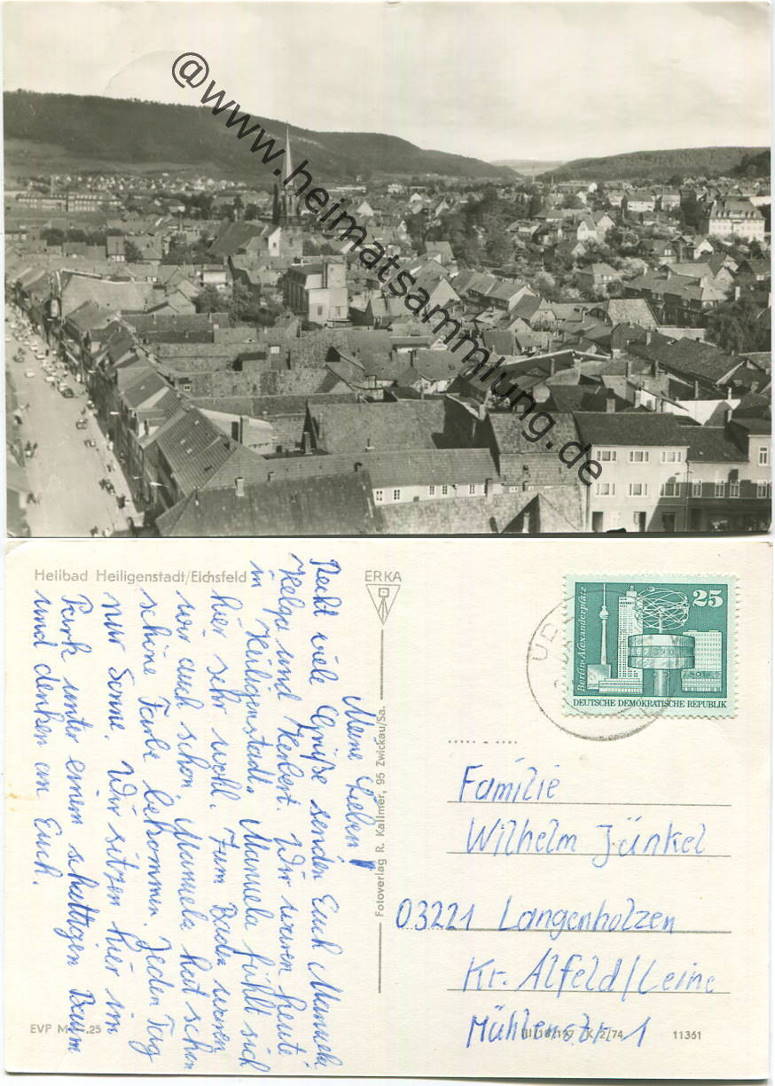 @www.heimatsammlung.de
Heilbad Heiligenstadt/Eichsfeld
ERKA
Meine Lieben!
Recht viele Grüße senden Euch Manuela
Helga und Herbert. Wir waren heute
in Heiligenstadt. Manuela fühlt sich
hier sehr wohl. Zum Baden waren
wir auch schon. Manuela hat schon
schöne Farbe bekommen. Jeden Tag
nur Sonne. Wir sitzen hier im
Park unter einem schattigen Baum
und denken an Euch.
EVP M
Fotoverlag R. Kallmer, 95 Zwickau/Sa.
25
Berlin-Alexanderplatz
DEUTSCHE DEMOKRATISCHE REPUBLIK
Familie
Wilhelm Jünkel
03221 Langenholzen
Kr. Alfeld/Leine
Mühlenstr. 1
11361